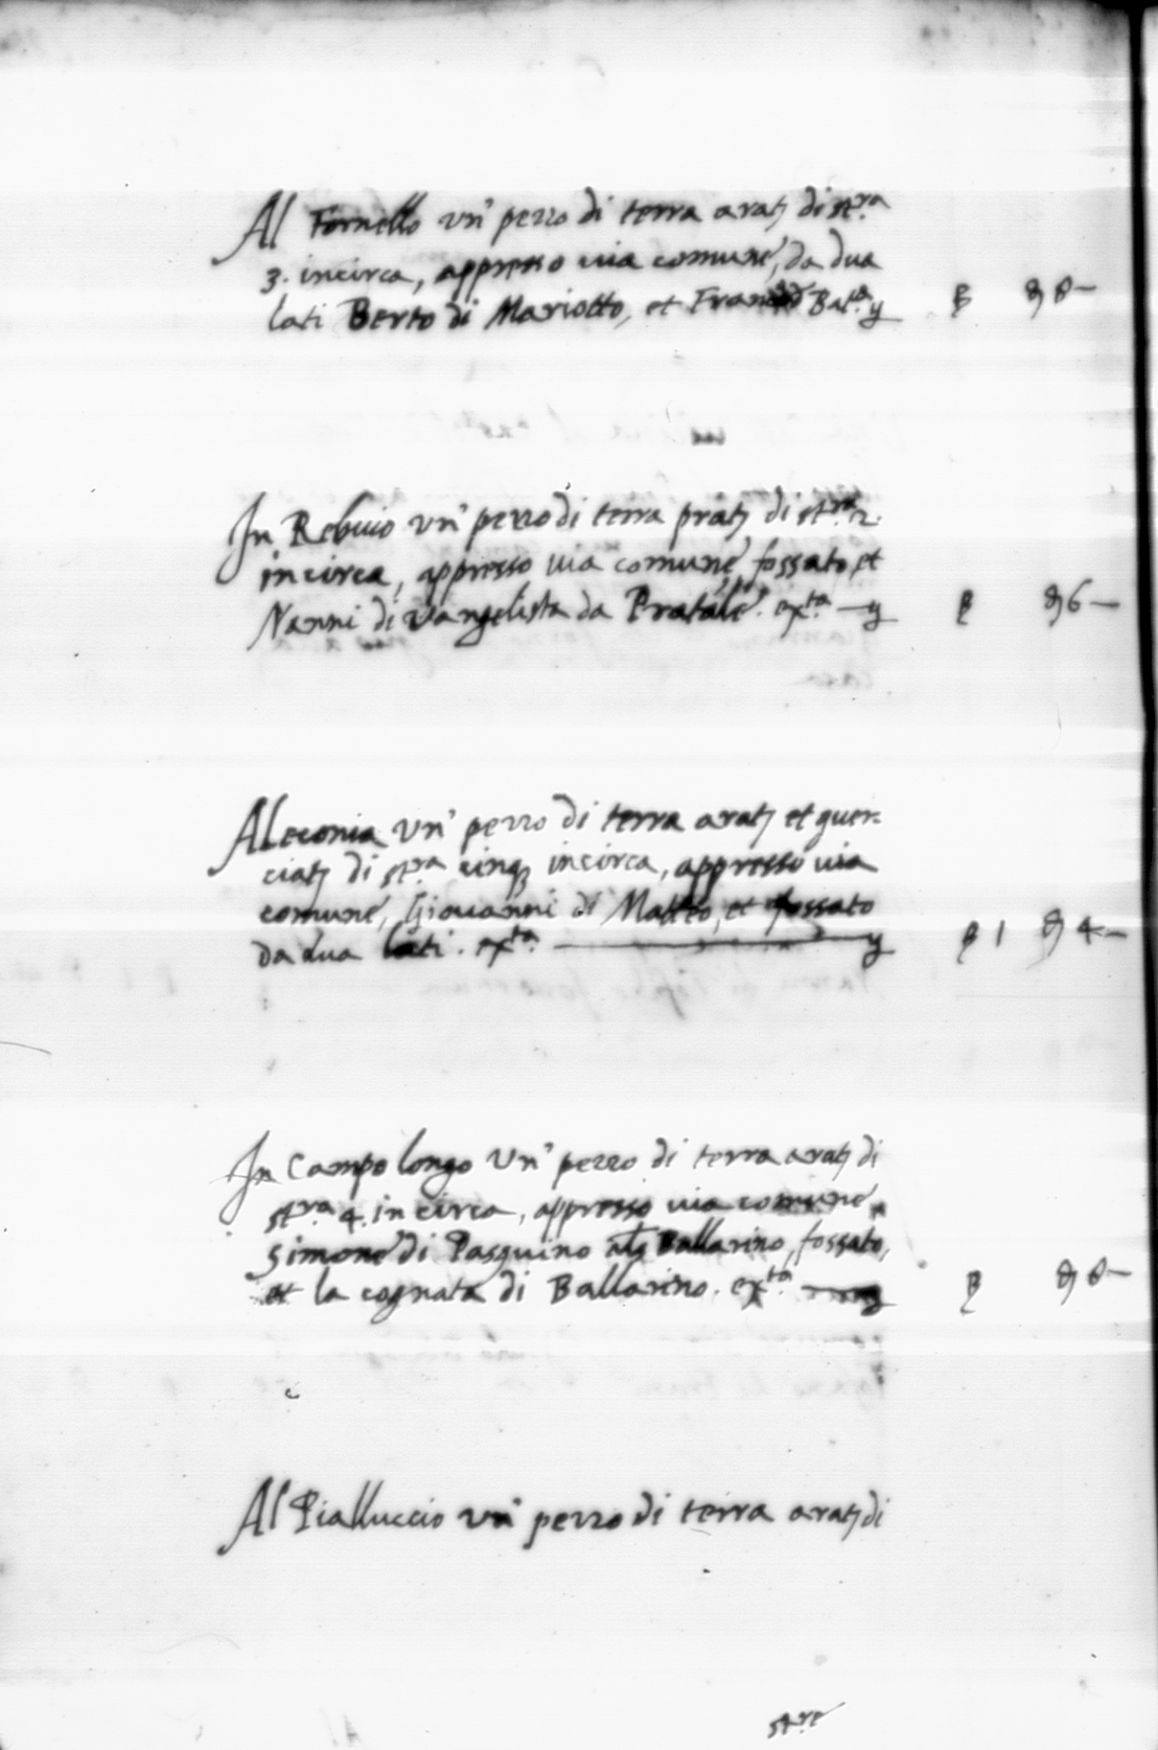 Al Fornello un' pezzo di terra arat; di st.ra
3. incirca, appresso uia comune, da dua
lati Berto di Mariotto, et Franc.o Bat.ta
8 –
In Rebuio un' pezzo di terra prat; di st.ra 2.
incirca, appresso uia comune, fossato, et
Nanni di Vangelista da Pratale. ex.ta —
6 —
Aleconia un' pezzo di terra arat; et quer-
ciat; di st.ra cinq; incirca, appresso uia
comune, Giouanni di Matteo, et fossato
da dua lati. ex.ta —
1 4 –
In Campo longo un' pezzo di terra arat; di
st.ra 4. in circa, appresso uia comune,
Simone di Pasquino als Ballarino, fossato,
et la cognata di Ballarino. ex.ta —
8 –
Al Pialluccio un' pezzo di terra arat; di
st.re